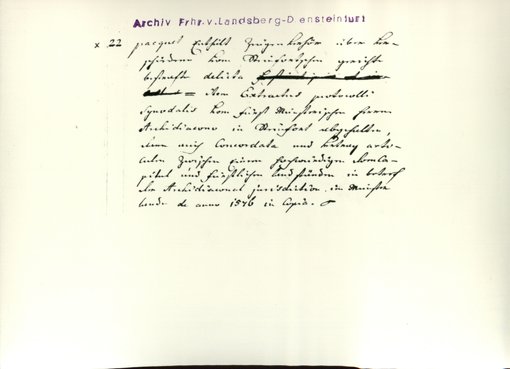 Archiv Frhr.v.Landsberg-Drensteinfurt
x 22 pacquet Enthält Zeugen Verhör über ver-
schiedene vom Steinfortschen gerichte
bestrafte delicta
item Extractus protocolli
Synodalis vom Fürst Münsterischen Herrn
Archidiacono in Steinfort abgehalten,
eine auch Concordata und arti-
culn zwischen einem hochwürdigen Domca-
pitul und fürstlichen Landständen in betreff
der Archidiaconal jurisdiction im Münster
lande de anno 1576 in Copia.